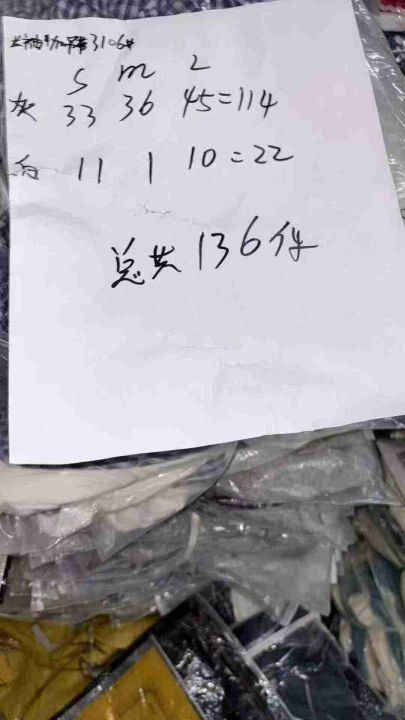 3106#
S M L
灰 33 36 45=114
白 11 1 10=22
总共136件